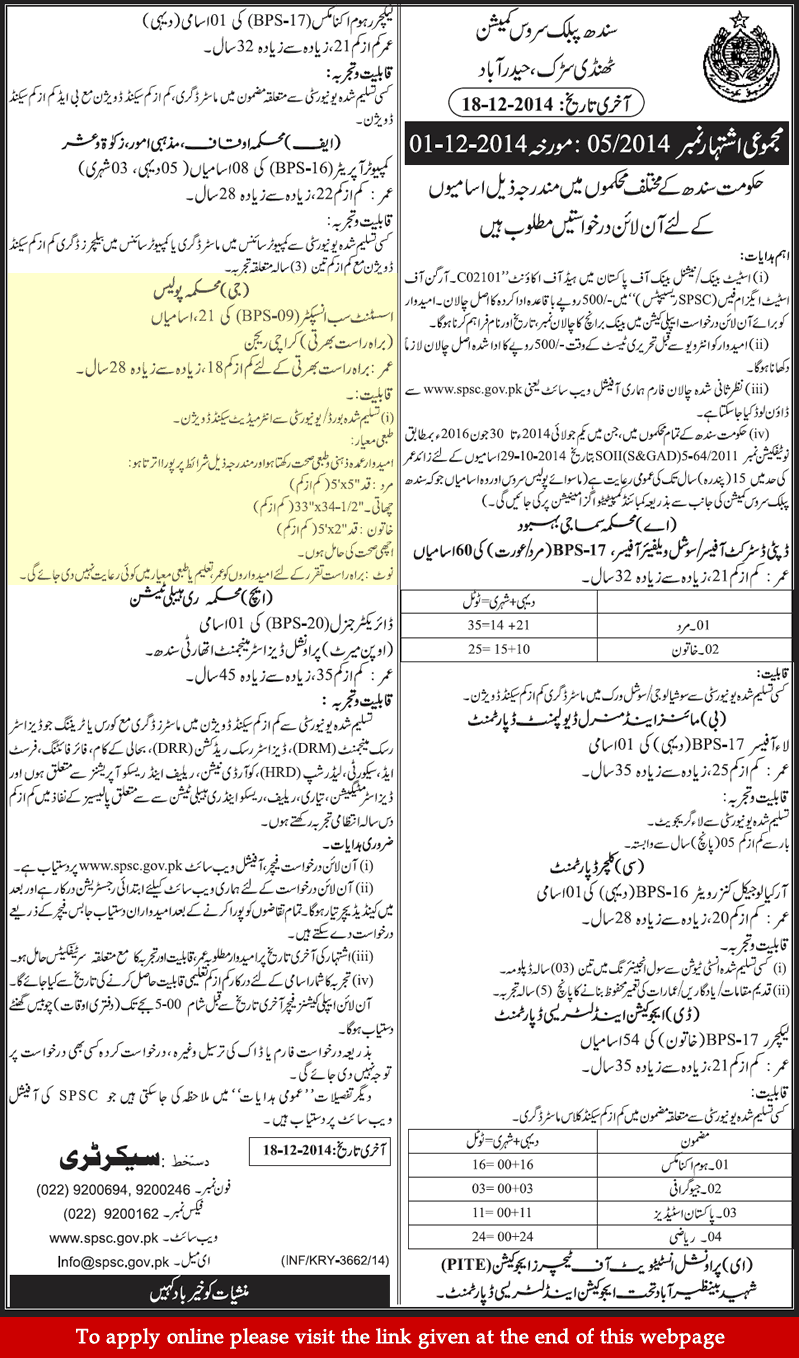 سندھ پبلک سروس کمیشن
ٹھنڈی سڑک، حیدرآباد
آخری تاریخ: 18-12-2014
مجموعی اشتہار نمبر 05/2014 : مورخہ 01-12-2014
حکومت سندھ کے مختلف محکموں میں مندرجہ ذیل اسامیوں
کے لئے آن لائن درخواستیں مطلوب ہیں
اہم ہدایات:
(i) اسٹیٹ بینک/نیشنل بینک آف پاکستان میں ہیڈ آف اکاؤنٹ "C02101۔آرگن آف
اسٹیٹ ایگزام فیس (SPSC رسیپٹس)" میں -/500 روپے باقاعدہ ادا کردہ کا اصل چالان۔ امیدوار
کو برائے آن لائن درخواست ایپلی کیشن میں بینک برانچ کا چالان نمبر، تاریخ اور نام فراہم کرنا ہوگا۔
(ii) امیدوار کو انٹرویو سے قبل تحریری ٹیسٹ کے وقت -/500 روپے کا ادا شدہ اصل چالان لازماً
دکھانا ہوگا۔
(iii) نظر ثانی شدہ چالان فارم ہماری آفیشل ویب سائٹ یعنی www.spsc.gov.pk سے
ڈاؤن لوڈ کیا جاسکتا ہے۔
(iv) حکومت سندھ کے تمام محکموں میں، جن میں یکم جولائی 2014ء تا 30 جون 2016ء بمطابق
نوٹیفکیشن نمبر SOII(S&GAD)5-64/2011 بتاریخ 29-10-2014 اسامیوں کے لئے زائد عمر
کی حد میں 15 (پندرہ) سال تک کی عمومی رعایت ہے (ماسوائے پولیس سروس اور وہ اسامیاں جو کہ سندھ
پبلک سروس کمیشن کی جانب سے بذریعہ کمبائنڈ کمپیٹیٹو اگزامینیشن پر کی جائیں گی۔)
(اے) محکمہ سماجی بہبود
ڈپٹی ڈسٹرکٹ آفیسر/سوشل ویلفیئر آفیسر، BPS-17 (مرد/عورت) کی 60 اسامیاں
عمر : کم از کم 21، زیادہ سے زیادہ 32 سال۔
دیہی+شہری=ٹوٹل
01۔مرد 21+ 14=35
02۔خاتون 10+15 =25
قابلیت:
کسی تسلیم شدہ یونیورسٹی سے سوشیالوجی/سوشل ورک میں ماسٹر ڈگری کم از کم سیکنڈ ڈویژن۔
(بی) مائنز اینڈ منرل ڈیولپمنٹ ڈپارٹمنٹ
لاء آفیسر BPS-17 (دیہی) کی 01 اسامی
عمر : کم از کم 25، زیادہ سے زیادہ 35 سال۔
قابلیت وتجربہ:
تسلیم شدہ یونیورسٹی سے لاء گریجویٹ۔
بار سے کم از کم 05 (پانچ) سال سے وابستہ۔
(سی) کلچر ڈپارٹمنٹ
آرکیالوجیکل کنزرویٹر BPS-16 (دیہی) کی 01 اسامی
عمر : کم از کم 20، زیادہ سے زیادہ 28 سال۔
قابلیت وتجربہ۔
(i) کسی تسلیم شدہ انسٹی ٹیوشن سے سول انجینئرنگ میں تین (03) سالہ ڈپلومہ۔
(ii) قدیم مقامات/یادگاریں/عمارات کی تعمیر محفوظ بنانے کا پانچ (5) سالہ تجربہ۔
(ڈی) ایجوکیشن اینڈ لٹریسی ڈپارٹمنٹ
لیکچرر BPS-17 (خاتون) کی 54 اسامیاں
عمر : کم از کم 21، زیادہ سے زیادہ 35 سال۔
قابلیت:
کسی تسلیم شدہ یونیورسٹی سے متعلقہ مضمون میں کم از کم سیکنڈ کلاس ماسٹر ڈگری۔
مضمون دیہی+شہری=ٹوٹل
01۔ہوم اکنامکس 16+00 =16
02۔جیوگرافی 03+00 =03
03۔پاکستان اسٹیڈیز 11+00 =11
04۔ریاضی 24+00 =24
(ای) پراونشل انسٹیٹیوٹ آف ٹیچرز ایجوکیشن (PITE)
شہید بینظیر آباد تحت ایجوکیشن اینڈ لٹریسی ڈپارٹمنٹ۔
لیکچرر ہوم اکنامکس (BPS-17) کی 01 اسامی (دیہی)
عمر کم از کم 21، زیادہ سے زیادہ 32 سال۔
قابلیت وتجربہ:
کسی تسلیم شدہ یونیورسٹی سے متعلقہ مضمون میں ماسٹر ڈگری، کم از کم سیکنڈ ڈویژن مع بی ایڈ کم از کم سیکنڈ
ڈویژن۔
(ایف) محکمہ اوقاف، مذہبی امور، زکوٰۃ وعشر
کمپیوٹر آپریٹر (BPS-16) کی 08 اسامیاں (05 دیہی، 03 شہری)
عمر : کم از کم 22، زیادہ سے زیادہ 28 سال۔
قابلیت وتجربہ:
کسی تسلیم شدہ یونیورسٹی سے کمپیوٹر سائنس میں ماسٹر ڈگری یا کمپیوٹر سائنس میں بیچلرز ڈگری کم از کم سیکنڈ
ڈویژن مع کم از کم تین (3) سالہ متعلقہ تجربہ۔
(جی) محکمہ پولیس
اسسٹنٹ سب انسپکٹر (BPS-09) کی 21، اسامیاں
(براہ راست بھرتی) کراچی ریجن
عمر : براہ راست بھرتی کے لئے کم از کم 18، زیادہ سے زیادہ 28 سال۔
قابلیت:۔
(i) تسلیم شدہ بورڈ/یونیورسٹی سے انٹرمیڈیٹ سیکنڈ ڈویژن۔
طبعی معیار:
امیدوار عمدہ ذہنی وطبعی صحت رکھتا ہو اور مندرجہ ذیل شرائط پر پورا اترتا ہو:
مرد: قد "5x'5 (کم از کم)
چھاتی۔ "33"x34-1/2 (کم از کم)
خاتون: قد "2x'5 (کم از کم)
اچھی صحت کی حامل ہوں۔
نوٹ: براہ راست تقرر کے لئے امیدواروں کو عمر، تعلیم یا طبعی معیار میں کوئی رعایت نہیں دی جائے گی۔
(ایچ) محکمہ ری ہیبلی ٹیشن
ڈائریکٹر جنرل (BPS-20) کی 01 اسامی
(اوپن میرٹ) پراونشل ڈیزاسٹر مینجمنٹ اتھارٹی سندھ۔
عمر : کم از کم 35، زیادہ سے زیادہ 45 سال۔
قابلیت وتجربہ :
تسلیم شدہ یونیورسٹی سے کم از کم سیکنڈ ڈویژن میں ماسٹرز ڈگری مع کورس یا ٹریننگ جو ڈیزاسٹر
رسک مینجمنٹ (DRM)، ڈیزاسٹر رسک ریڈکشن (DRR)، بحالی کے کام، فائر فائٹنگ، فرسٹ
ایڈ، سیکورٹی، لیڈرشپ (HRD)، کوآرڈی نیشن، ریلیف اینڈ ریسکو آپریشنز سے متعلق ہوں اور
ڈیزاسٹر مٹیگیشن، تیاری، ریلیف، ریسکو اینڈ ری ہیبلی ٹیشن سے سے متعلق پالیسیز کے نفاذ میں کم از کم
دس سالہ انتظامی تجربہ رکھتے ہوں۔
ضروری ہدایات۔
(i) آن لائن درخواست فیچر، آفیشل ویب سائٹ www.spsc.gov.pk پر دستیاب ہے۔
(ii) آن لائن درخواست کے لئے ہماری ویب سائٹ کیلئے ابتدائی رجسٹریشن درکار ہے اور بعد
میں کینڈیڈیچر تیار ہوگا۔ تمام تقاضوں کو پورا کرنے کے بعد امیدواران دستیاب جابس فیچر کے ذریعے
درخواست دے سکتے ہیں۔
(iii) اشتہار کی آخری تاریخ پر امیدوار مطلوبہ عمر، قابلیت اور تجربہ کا مع متعلقہ سرٹیفکیٹس حامل ہو۔
(iv) تجربہ کا شمار اسامی کے لئے درکار کم از کم تعلیمی قابلیت حاصل کرنے کی تاریخ سے کیا جائے گا۔
آن لائن اپیلی کیشنز فیچر آخری تاریخ سے قبل شام 5-00 بجے تک (دفتری اوقات) چوبیس گھنٹے
دستیاب ہوگا۔
بذریعہ درخواست فارم یا ڈاک کی ترسیل وغیرہ، درخواست کردہ کسی بھی درخواست پر
توجہ نہیں دی جائے گی۔
دیگر تفصیلات "عمومی ہدایات" میں ملاحظہ کی جاسکتی ہیں جو SPSC کی آفیشل
ویب سائٹ پر دستیاب ہیں ۔
آخری تاریخ: 18-12-2014
دستخط : سیکرٹری
فون نمبر۔ 9200246 ,9200694 (022)
فیکس نمبر۔ 9200162 (022)
ویب سائٹ۔ www.spsc.gov.pk
ای میل۔ Info@spsc.gov.pk
(INF/KRY-3662/14)
منشیات کو خیر باد کہیں
To apply online please visit the link given at the end of this webpage